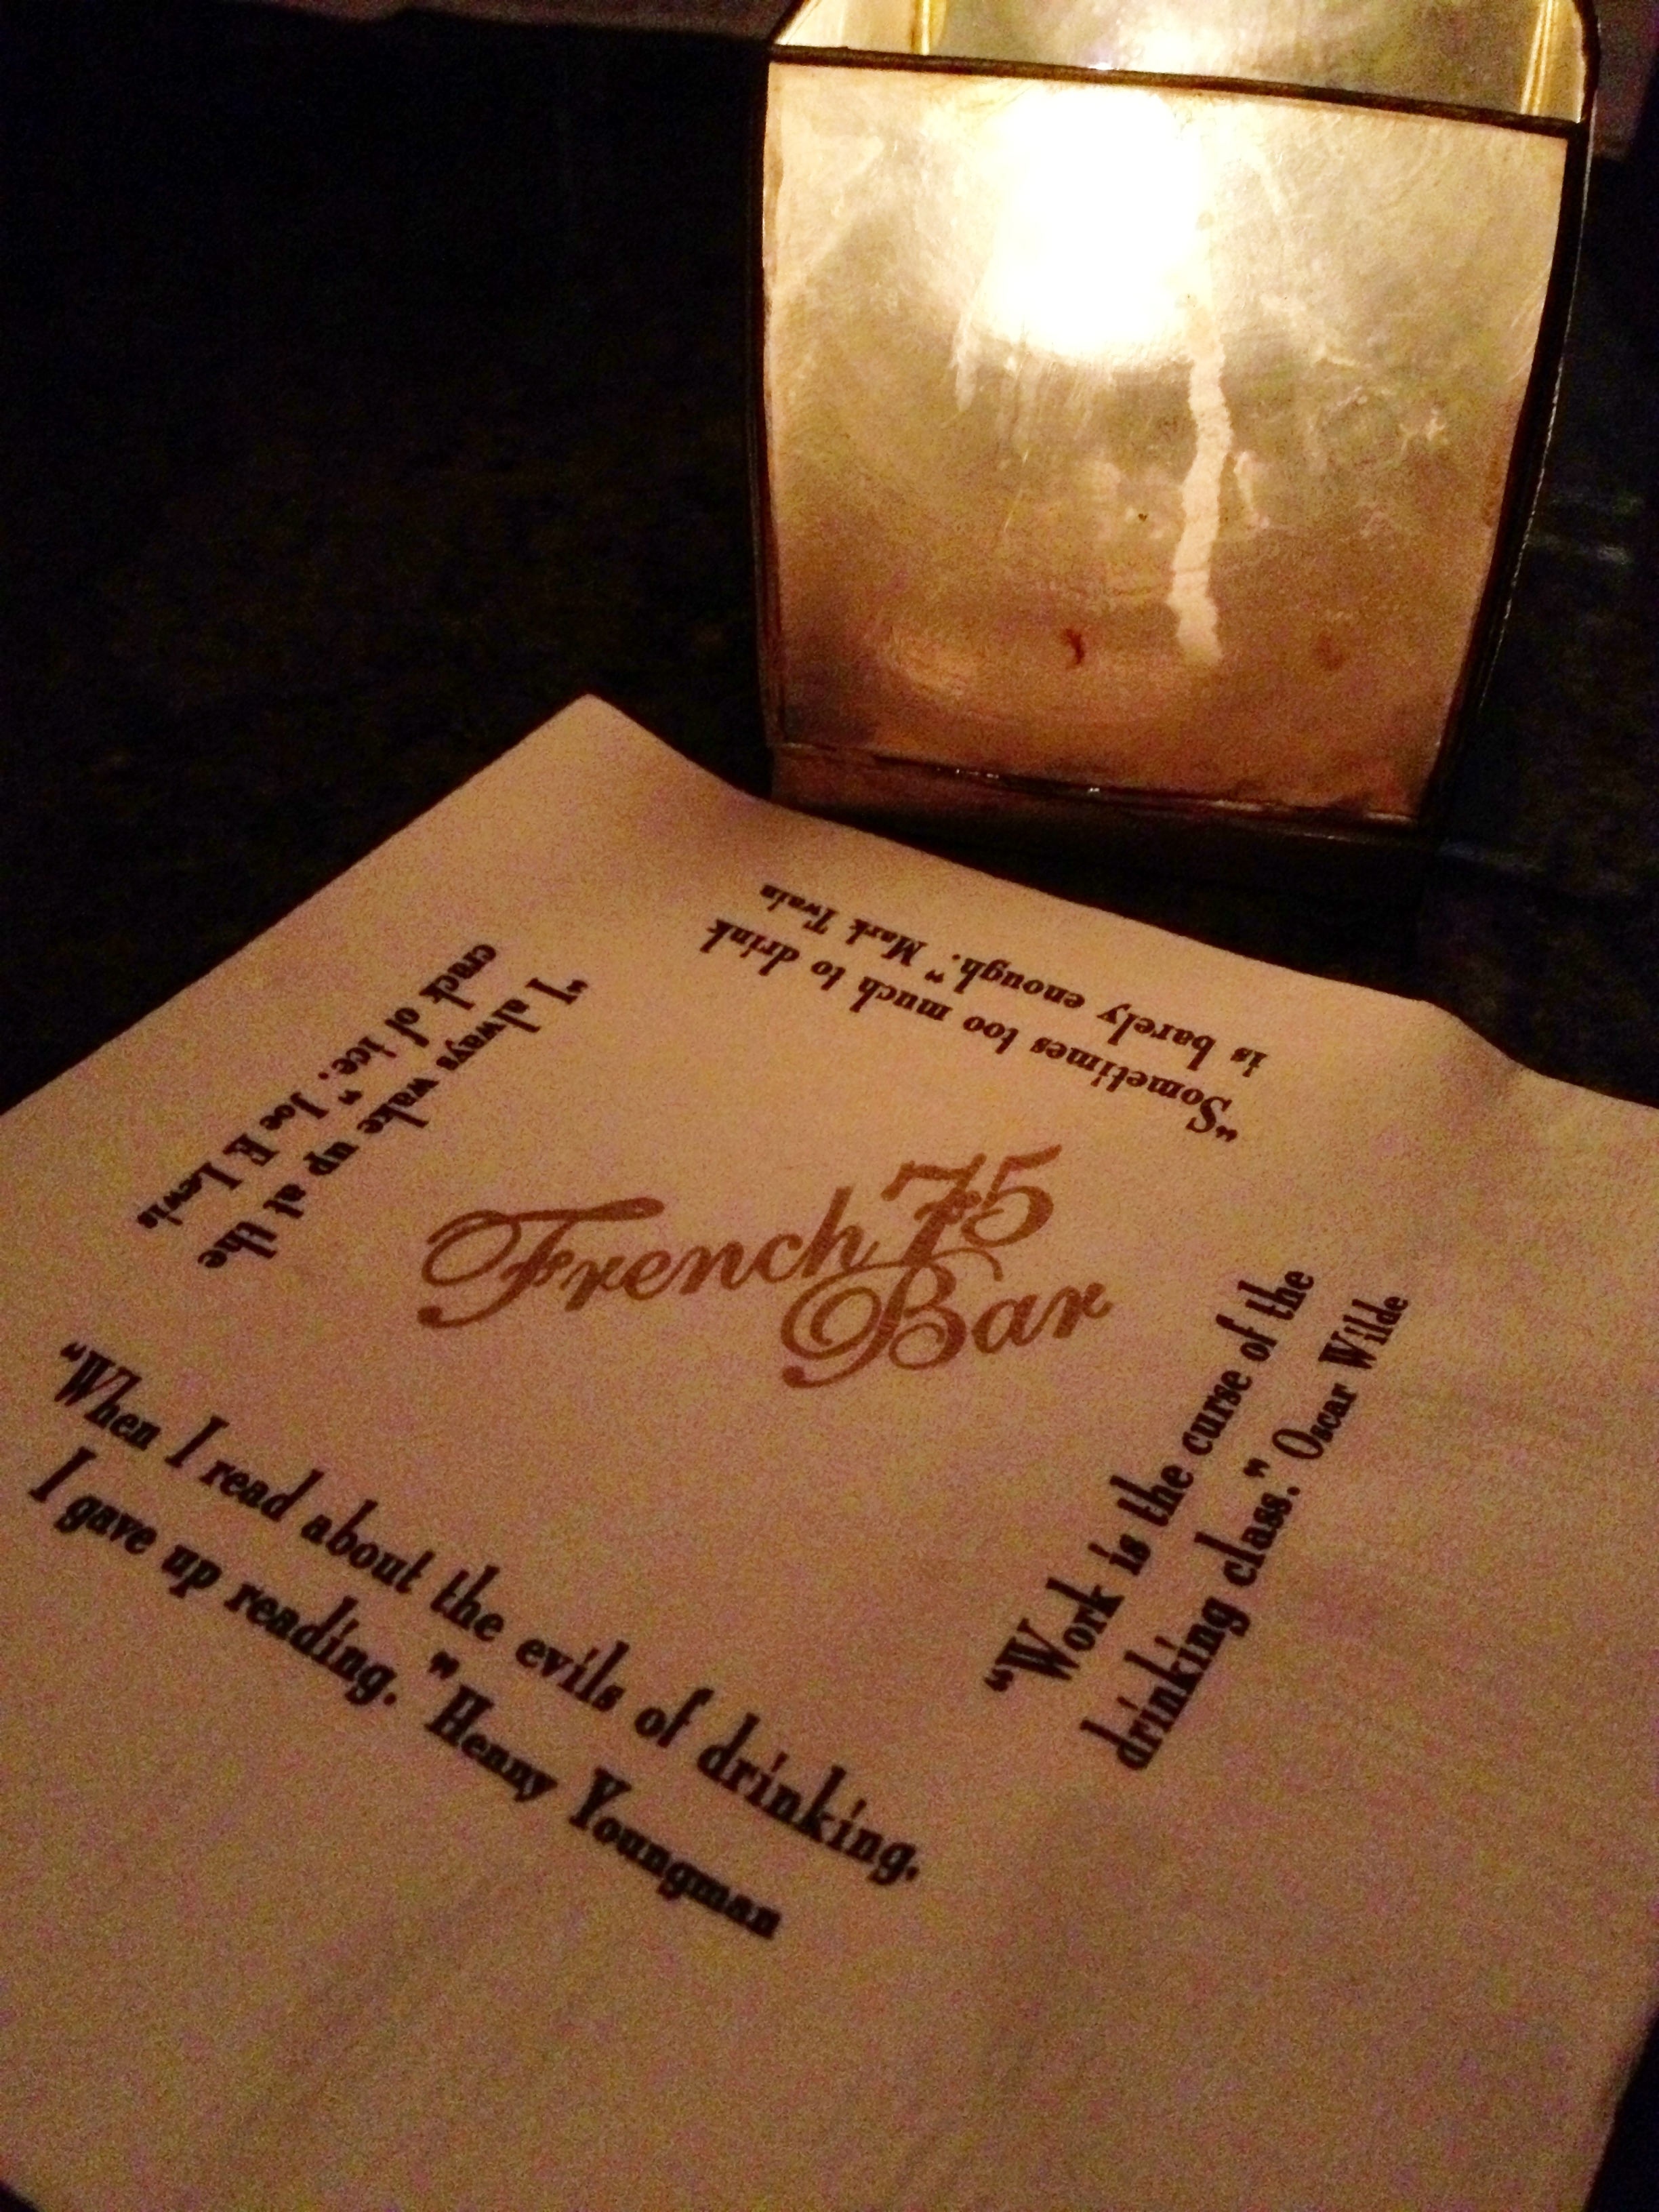 "Sometimes too much to drink
is barely enough." Mark Twain
"I always wake up at the
crack of ice." Joe E Lewis
French 75
Bar
"Work is the curse of the
drinking class." Oscar Wilde
"When I read about the evils of drinking.
I gave up reading." Henny Youngman